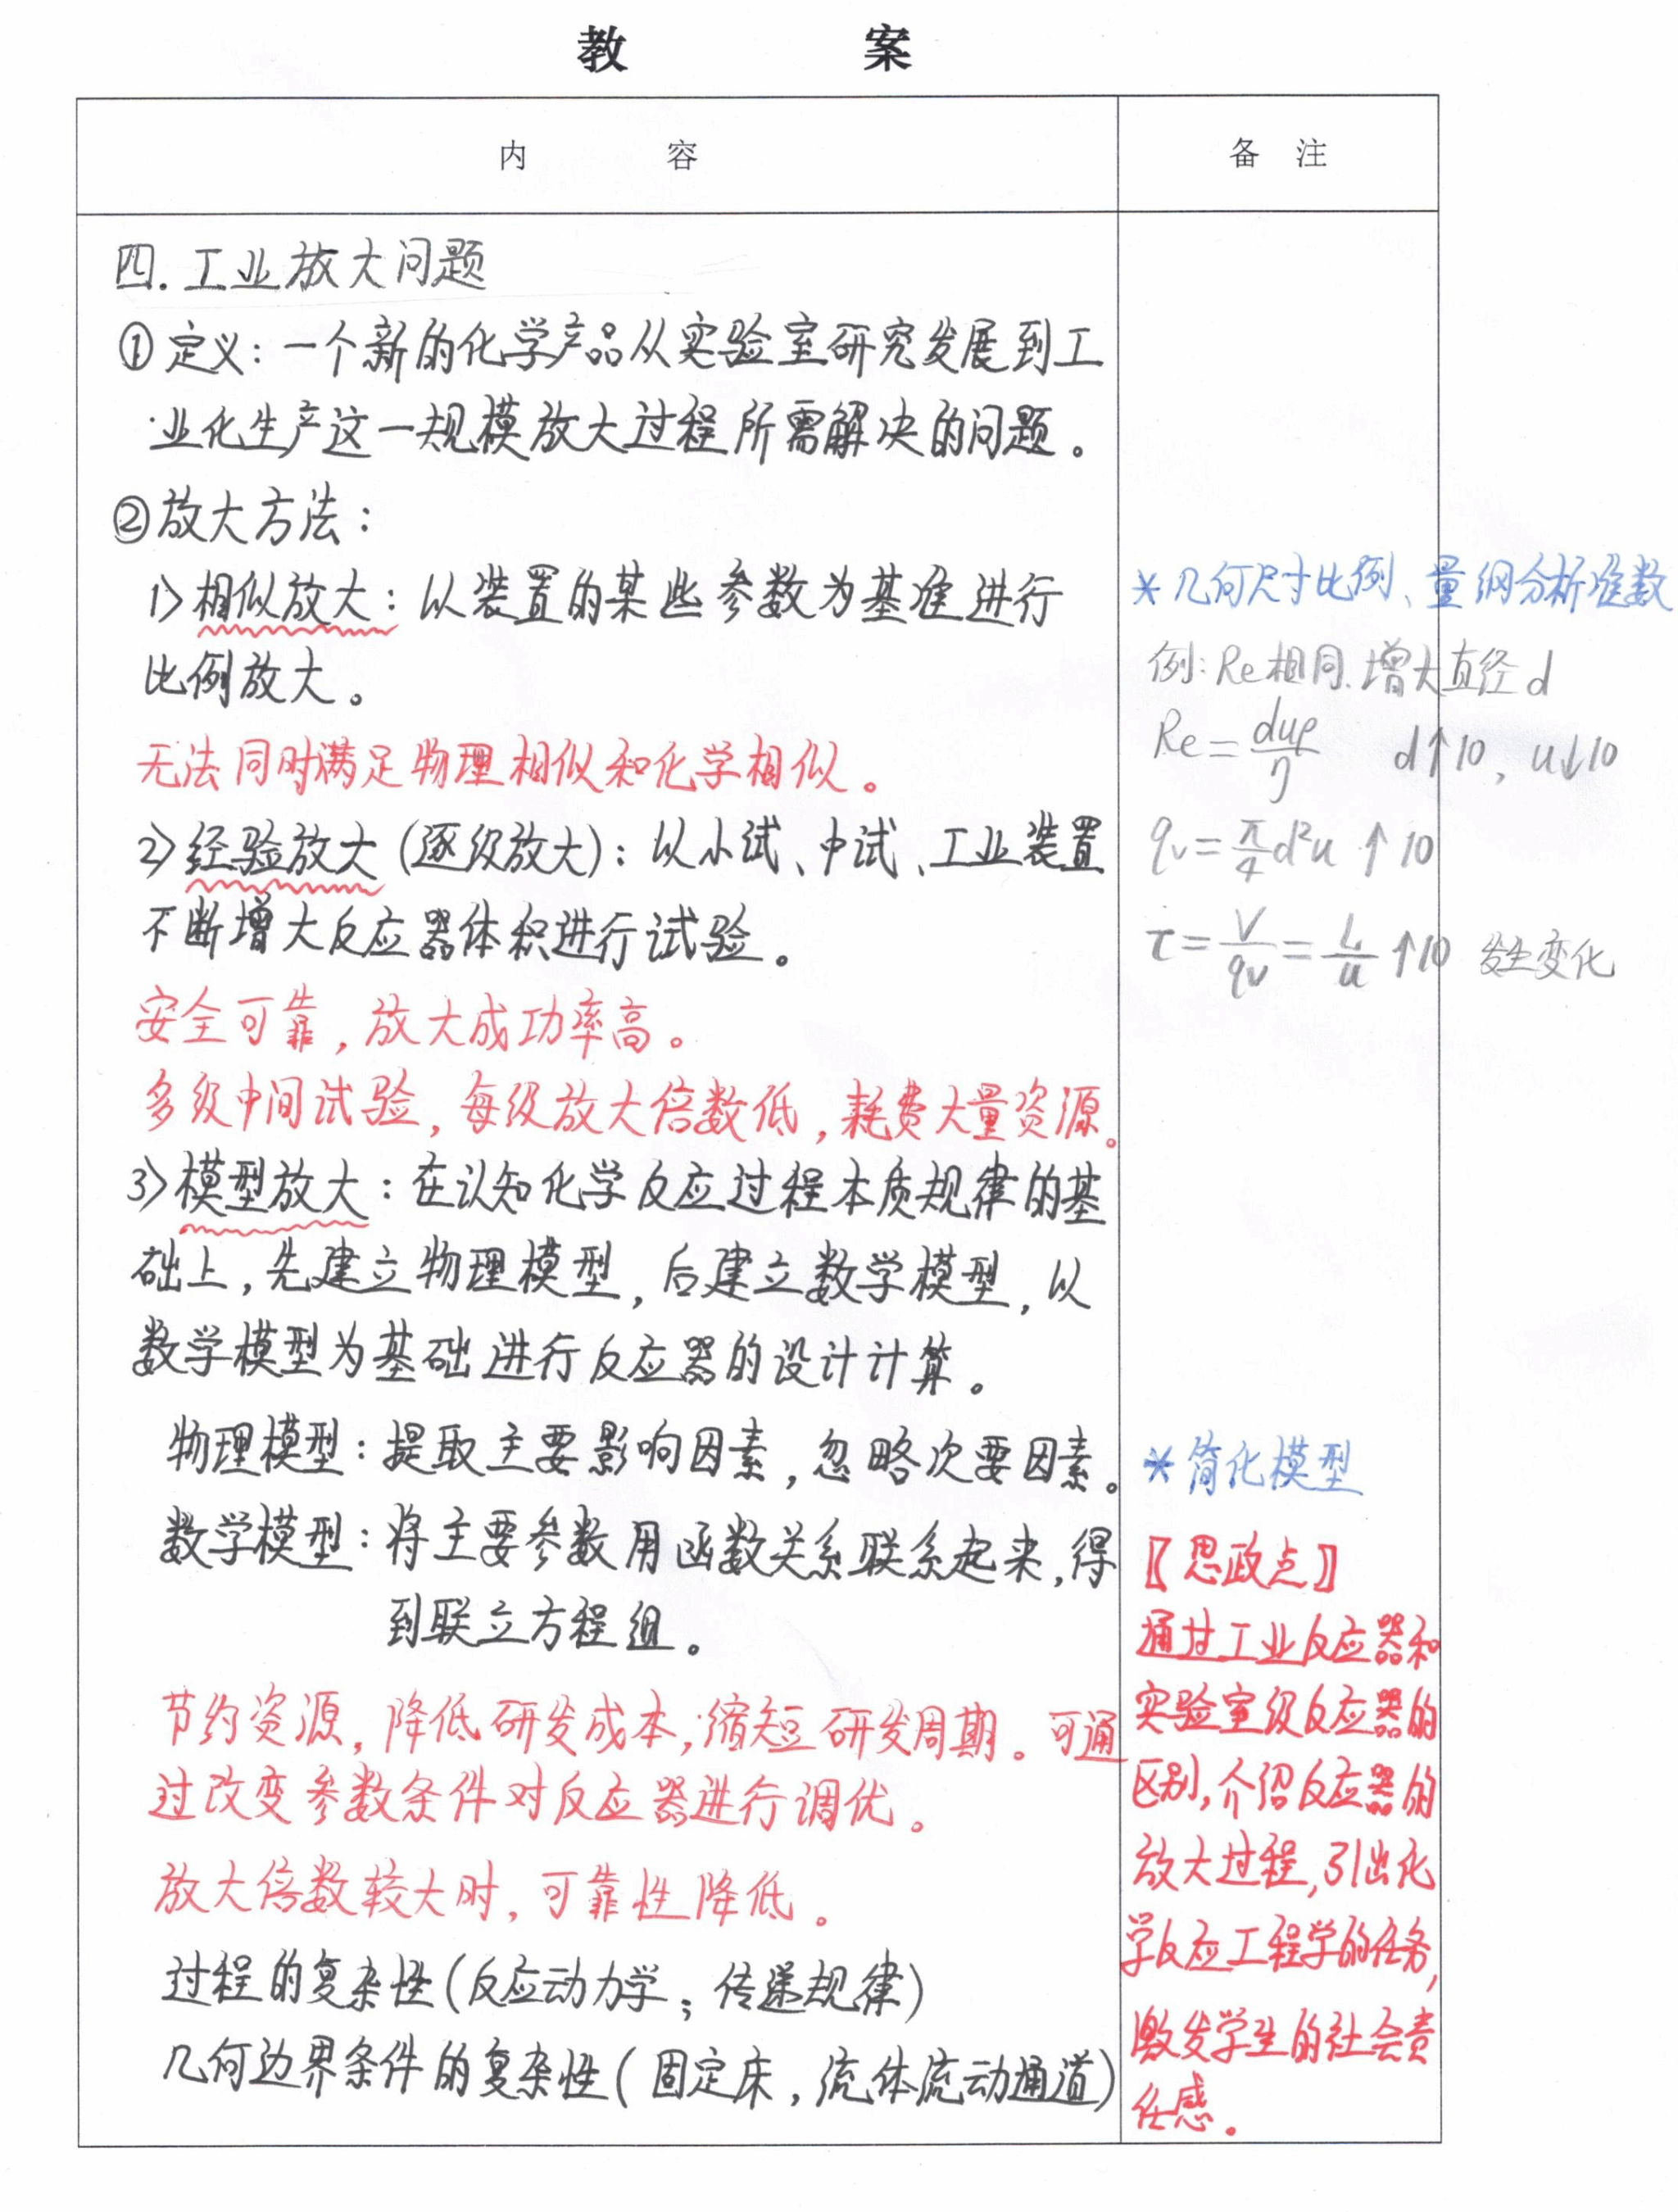 教 案
内 容
备 注
四.工业放大问题
①定义：一个新的化学产品从实验室研究发展到工
业化生产这一规模放大过程所需解决的问题。
②放大方法：
1>相似放大：以装置的某些参数为基准进行
比例放大。
无法同时满足物理相似和化学相似。
2>经验放大(逐级放大)：以小试、中试、工业装置
不断增大反应器体积进行试验。
安全可靠，放大成功率高。
多级中间试验，每级放大倍数低，耗费大量资源。
3>模型放大：在认知化学反应过程本质规律的基
础上，先建立物理模型，后建立数学模型，以
数学模型为基础进行反应器的设计计算。
物理模型：提取主要影响因素，忽略次要因素。
数学模型：将主要参数用函数关系联系起来，得
到联立方程组。
节约资源，降低研发成本；缩短研发周期。可通
过改变参数条件对反应器进行调优。
放大倍数较大时，可靠性降低。
过程的复杂性(反应动力学；传递规律)
几何边界条件的复杂性(固定床，流体流动通道)
*几何尺寸比例、量纲分析准数
例：Re相同.增大直径d
Re=duρ/η d↑10，u↓10
qv=π/4 d²u ↑10
τ=V/qv=L/u ↑10 发生变化
*简化模型
〖思政点〗
通过工业反应器和
实验室级反应器的
区别，介绍反应器的
放大过程，引出化
学反应工程学的任务，
激发学生的社会责
任感。